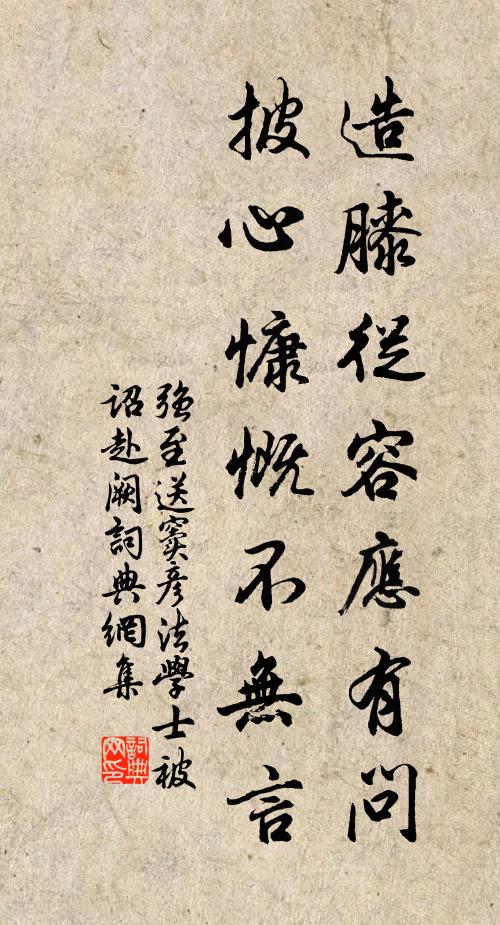 造膝從容應有問
披心慷慨不無言
強至送竇彥法學士被
詔赴闕詞典網集
詞典
网印